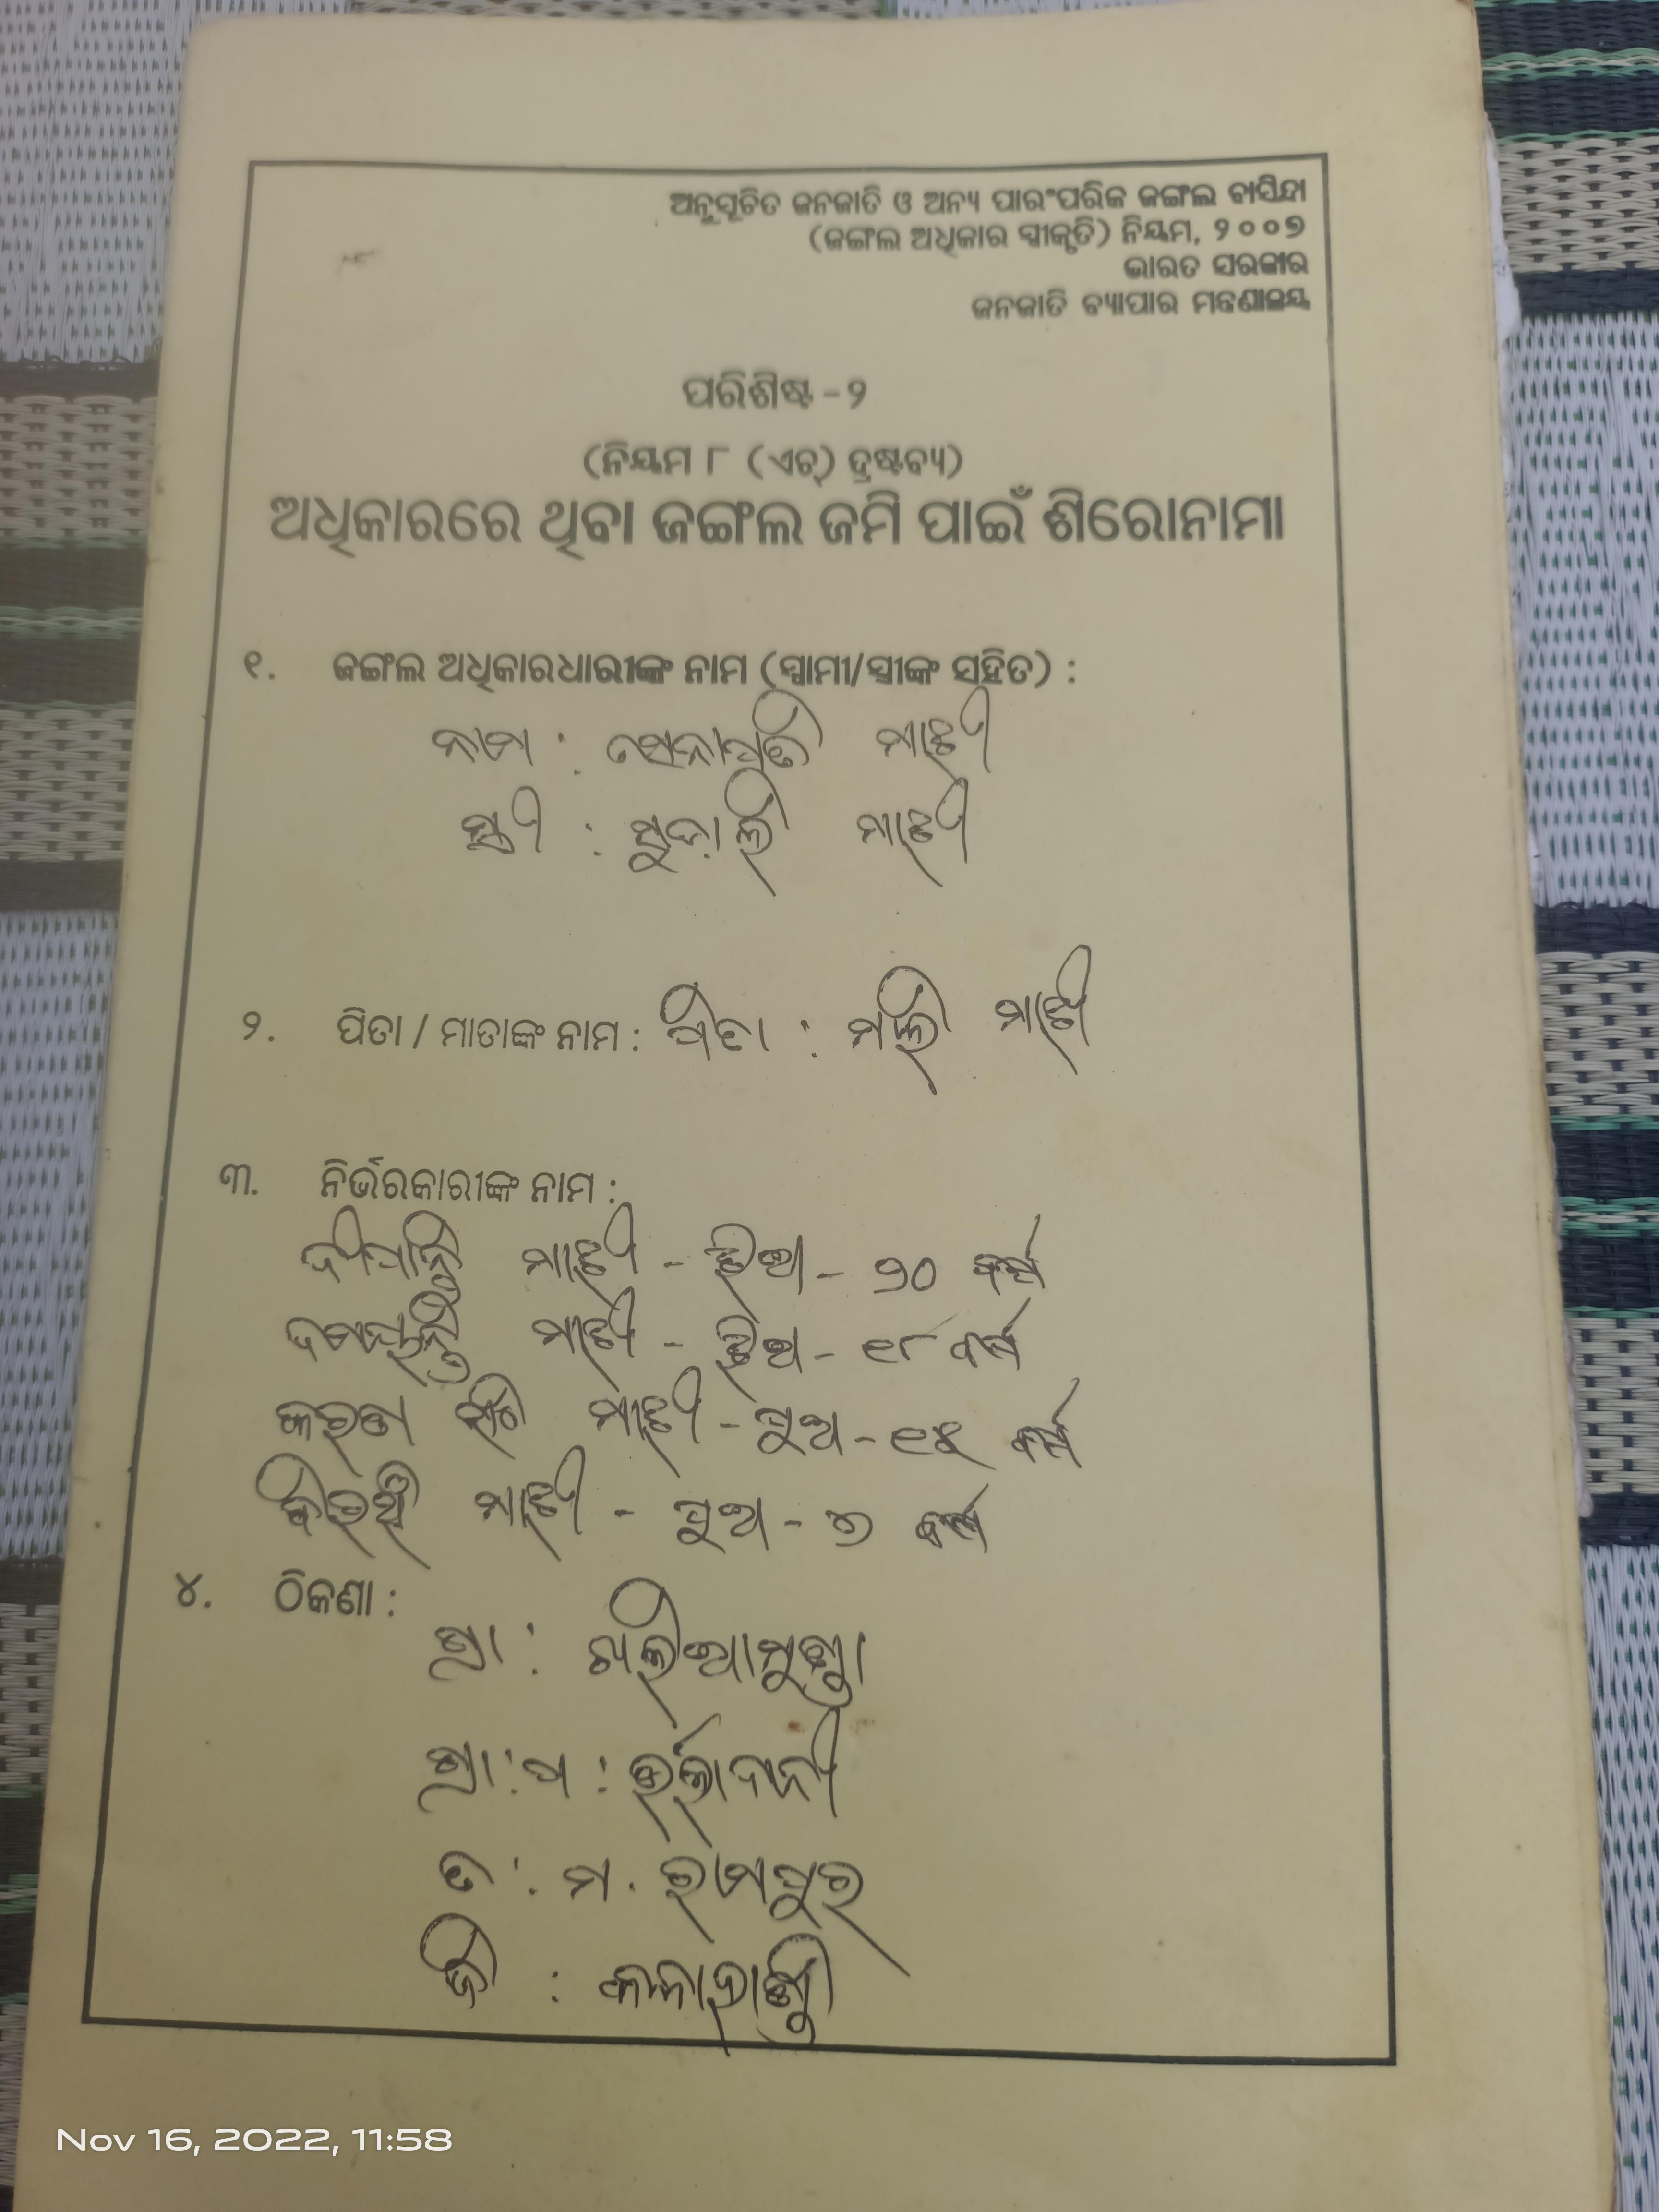 ଅନୁସୂଚିତ ଜନଜାତି ଓ ଅନ୍ୟ ପାରଂପରିକ ଜଙ୍ଗଲ ବାସିନ୍ଦା
(ଜଙ୍ଗଲ ଅଧିକାର ସ୍ୱୀକୃତି) ନିୟମ, ୨୦୦୭
ଭାରତ ସରକାର
ଜନଜାତି ବ୍ୟାପାର ମନ୍ତ୍ରଣାଳୟ
ପରିଶିଷ୍ଟ - ୨
(ନିୟମ ୮ (ଏଚ୍) ଦ୍ରଷ୍ଟବ୍ୟ)
ଅଧିକାରରେ ଥିବା ଜଙ୍ଗଲ ଜମି ପାଇଁ ଶିରୋନାମା
୧. ଜଙ୍ଗଲ ଅଧିକାରଧାରୀଙ୍କ ନାମ (ସ୍ୱାମୀ/ସ୍ତ୍ରୀଙ୍କ ସହିତ) :
ନାମ : ସେନାପତି ମାଝୀ
ସ୍ତ୍ରୀ : ମାଝୀ
୨. ପିତା / ମାତାଙ୍କ ନାମ : ପିତା : ମଲି ମାଝୀ
୩. ନିର୍ଭରକାରୀଙ୍କ ନାମ :
ମାଝୀ - ଝିଅ - ୨୦ ବର୍ଷ
ଦମୟନ୍ତି ମାଝୀ - ଝିଅ - ୧୮ ବର୍ଷ
ମାଝୀ - ପୁଅ - ୧୫ ବର୍ଷ
ମାଝୀ - ପୁଅ - ୬ ବର୍ଷ
୪. ଠିକଣା :
ଗ୍ରା : 
ଗ୍ରା : ପ : 
ତ : ମ. ରାମପୁର
ଜି : କଳାହାଣ୍ଡି
Nov 16, 2022, 11:58